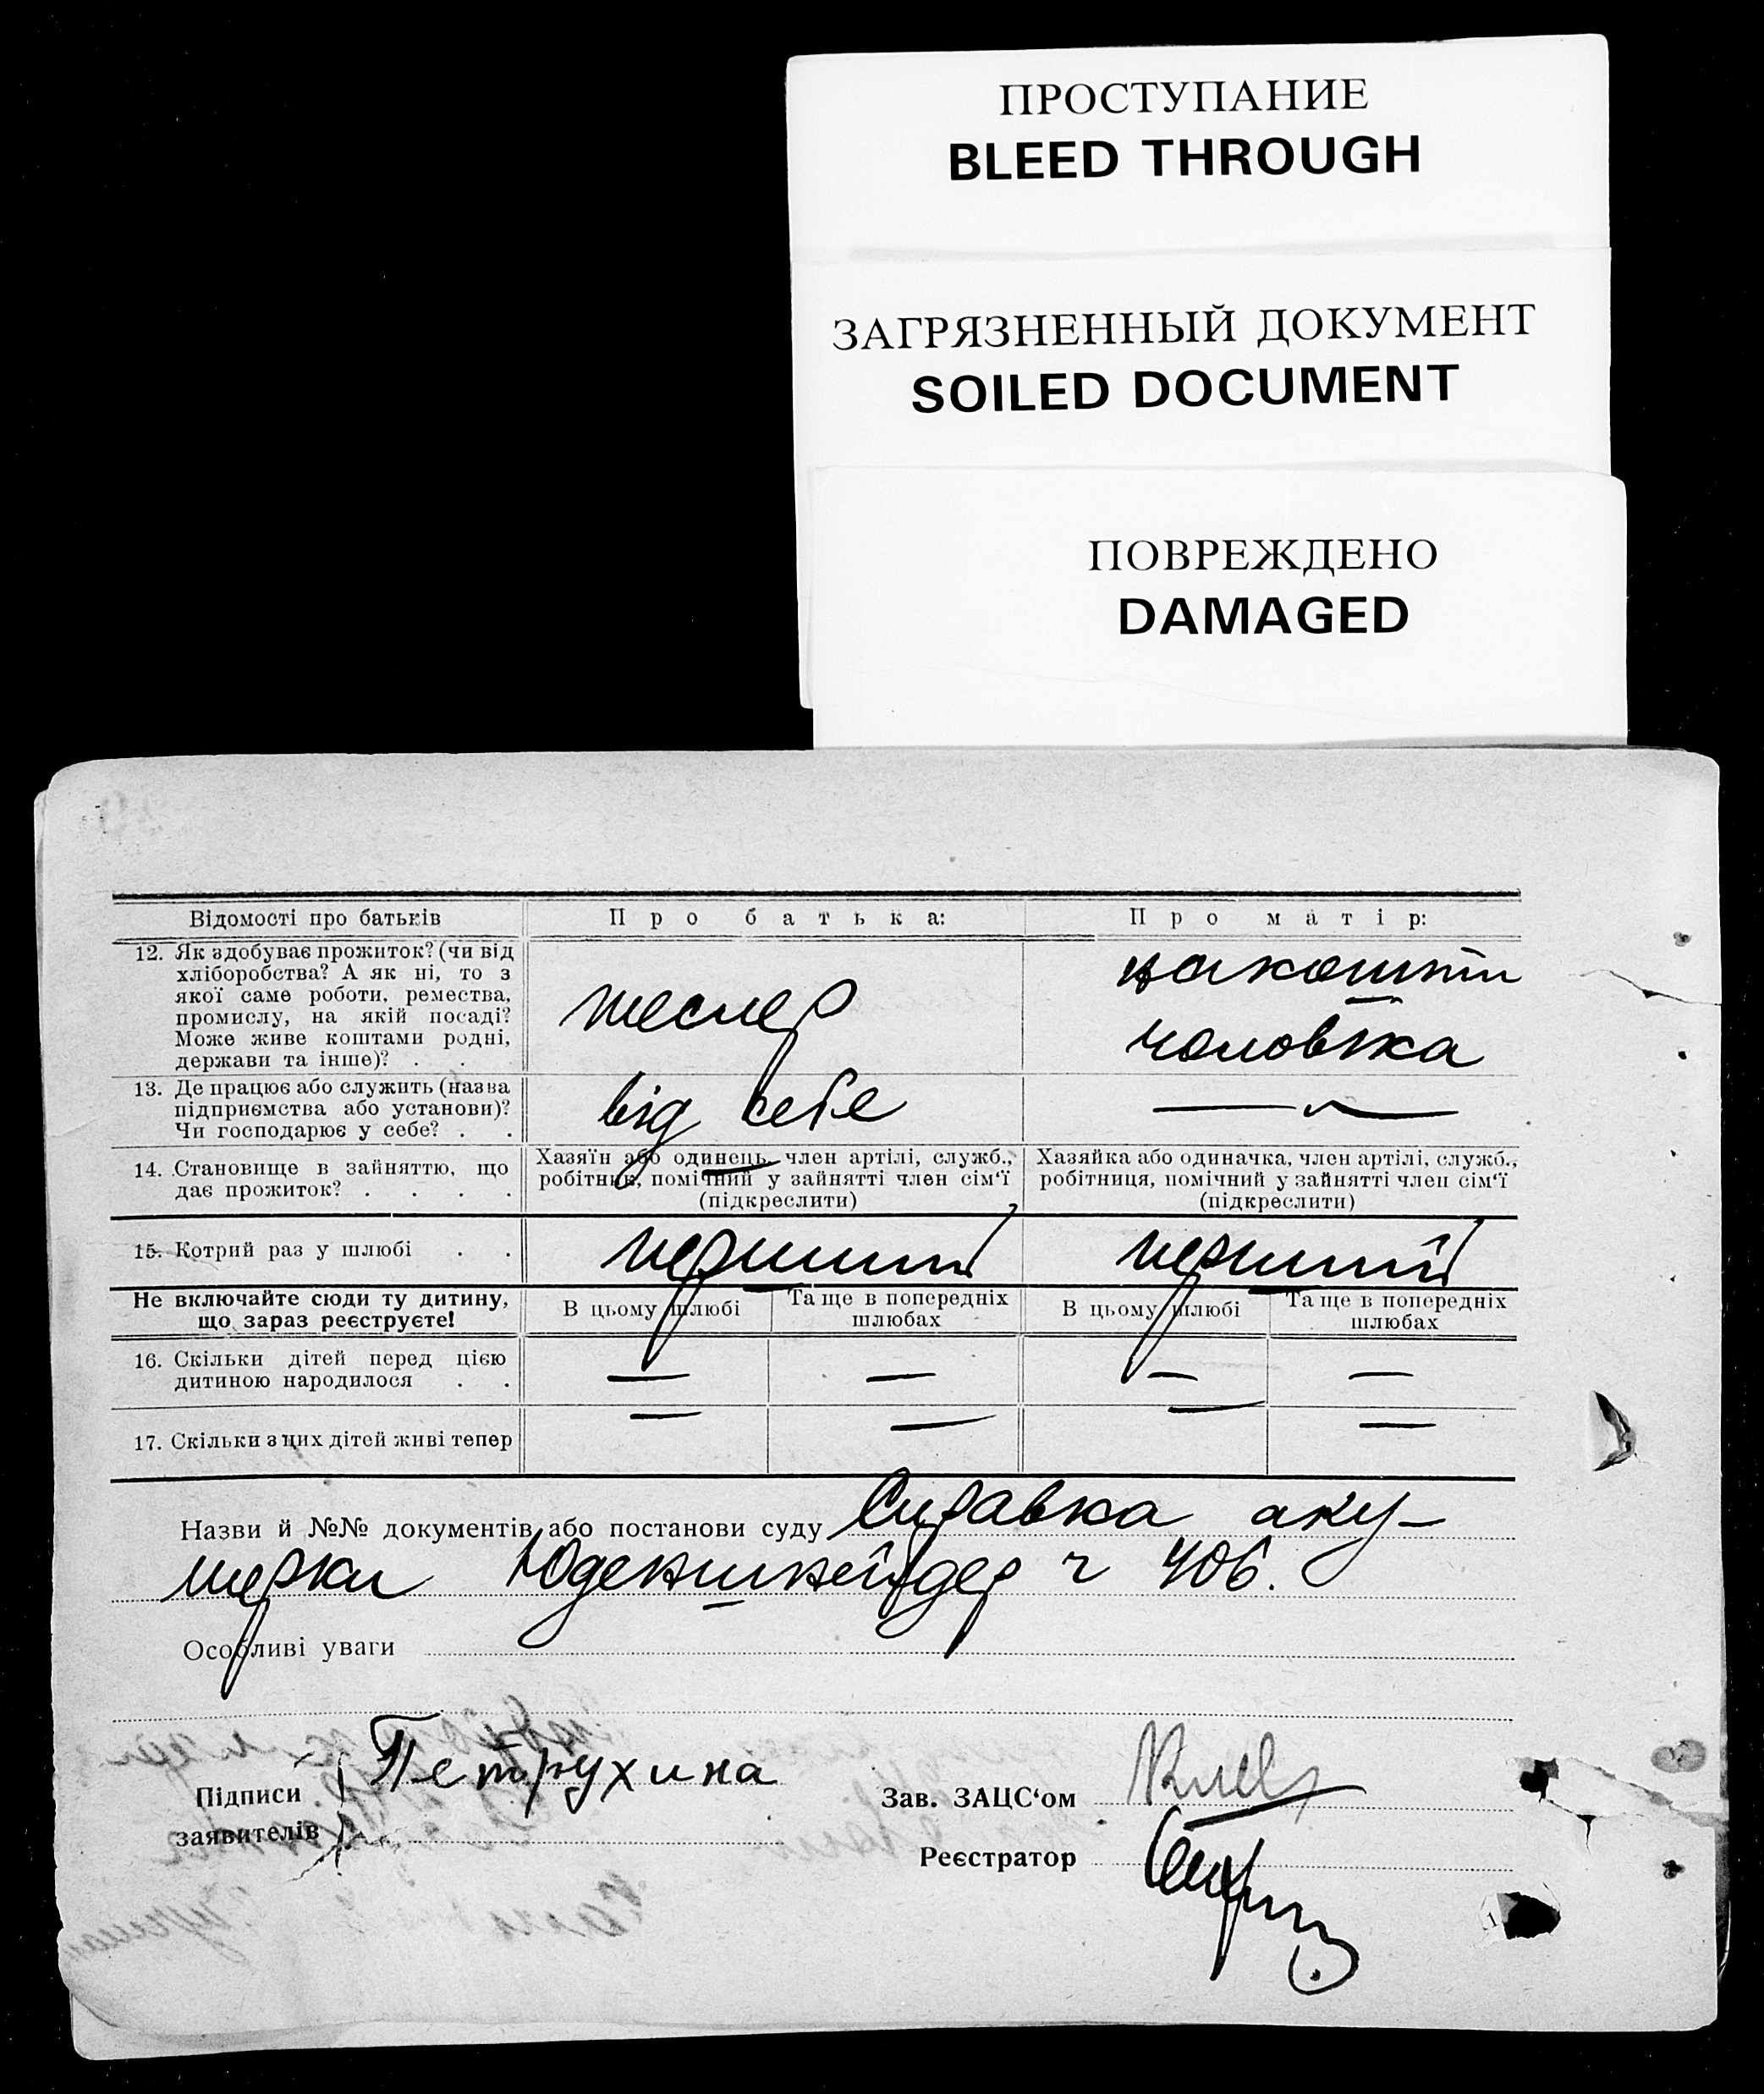 ПРОСТУПАНИЕ
BLEED THROUGH
ЗАГРЯЗНЕННЫЙ ДОКУМЕНТ
SOILED DOCUMENT
ПОВРЕЖДЕНО
DAMAGED
Відомості про батьків
Про батька:
Про матір:
12. Як здобуває прожиток? (чи від
хліборобства? А як ні, то з
якої саме роботи, ремества,
промислу, на якій посаді?
Може живе коштами родні,
держави та інше)? . .
тесляр
на кошти
чоловіка
13. Де працює або служить (назва
підприємства або установи)?
Чи господарює у себе? . .
від себе
14. Становище в зайняттю, що
дає прожиток? . . . .
Хазяїн або одинець, член артілі, служб.,
робітник, помічний у зайнятті член сім'ї
(підкреслити)
Хазяйка або одиначка, член артілі, служб.,
робітниця, помічний у зайнятті член сім'ї
(підкреслити)
15. Котрий раз у шлюбі . .
перший
перший
Не включайте сюди ту дитину,
що зараз реєструєте!
В цьому шлюбі
Та ще в попередніх
шлюбах
В цьому шлюбі
Та ще в попередніх
шлюбах
16. Скільки дітей перед цією
дитиною народилося . .
— — — —
17. Скільки з цих дітей живі тепер
— — — —
Назви й №№ документів або постанови суду Справка аку-
шерки Юденшнейдер ч 406.
Особливі уваги
Підписи
заявителів
Петрухина
Зав. ЗАЦС'ом
Реєстратор